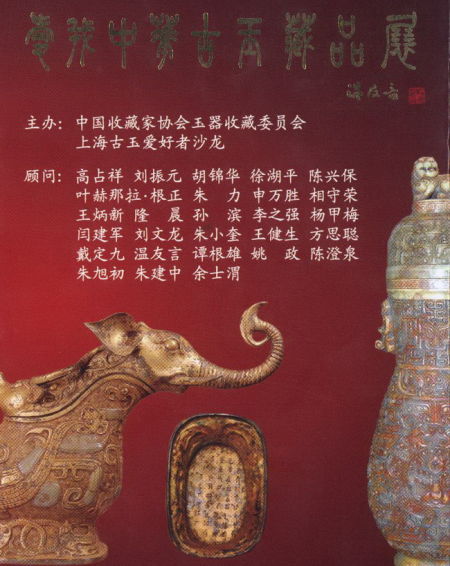 愛我中華古玉藏品展
温友言
主办：中国收藏家协会玉器收藏委员会
上海古玉爱好者沙龙
顾问：高占祥 刘振元 胡锦华 徐湖平 陈兴保
叶赫那拉·根正 朱 力 申万胜 相守荣
王炳新 隆 晨 孙 滨 李之强 杨甲梅
闫建军 刘文龙 朱小奎 王健生 方思聪
戴定九 温友言 谭根雄 姚 政 陈澄泉
朱旭初 朱建中 余士渭